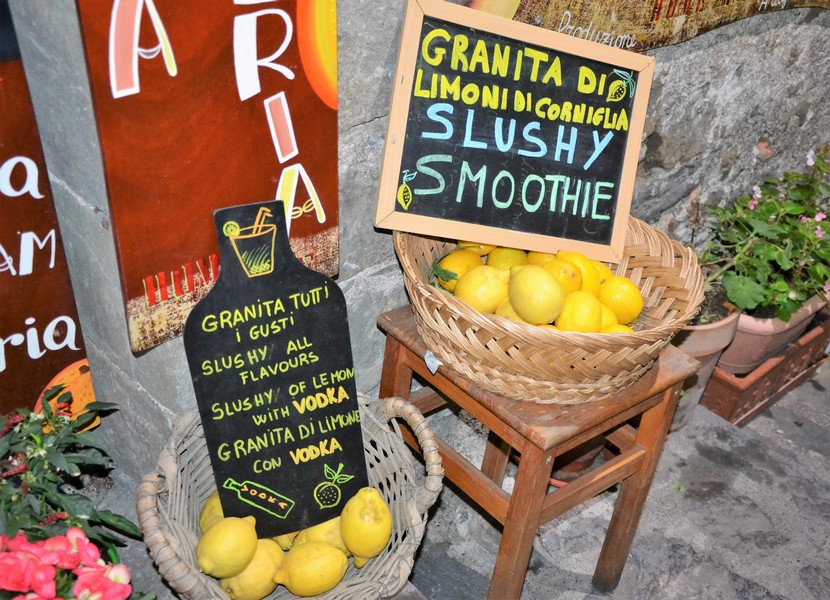 GRANITA DI
LIMONI DI CORNIGLIA
SLUSHY
SMOOTHIE
GRANITA TUTTI
I GUSTI
SLUSHY ALL
FLAVOURS
SLUSHY OF LEMON
WITH VODKA
GRANITA DI LIMONE
CON VODKA
VODKA
Produzione
A
ERIA
ria